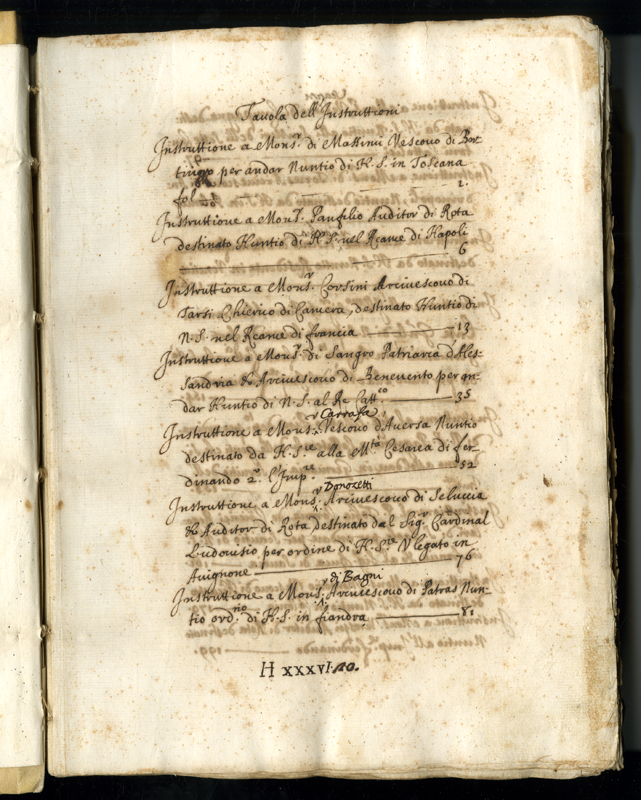 Tauola dell'Instruttioni
Instruttione a Mons.r di Massimi Vescouo di Bert
tinoro per andar Nuntio di N.S. in Toscana
fol 1.
Instruttione a Mons.r Panfilio Auditor di Rota
destinato Nuntio di N.S. nel Reame di Napoli
6
Instruttione a Mons.r Corsini Arciuescouo di
Tarsi Chierico di Camera, destinato Nuntio di
N.S. nel Reame di francia 13
Instruttione a Mons.r di Sangro Patriarca d'Ales-
sandria & Arciuescouo di Beneuento per an-
dar Nuntio di N.S. al Re Catt.co 35
Carrafa
Instruttione a Mons.r Vescouo d'Auersa Nuntio
destinato da N.S.re alla M.tà Cesarea di fer
dinando 2.º Imp.re 52
Donozetti
Instruttione a Mons.r Arciuescouo di Seluccia
& Auditor di Rota destinato dal Sig.r Cardinal
Ludouisio per ordine di N.S.re Vlegato in
Auignone 76
di Bagni
Instruttione a Mons.r Arciuescouo di Patras Nun-
tio ord.rio di N.S. in fiandra 81
H XXXVI. 20.